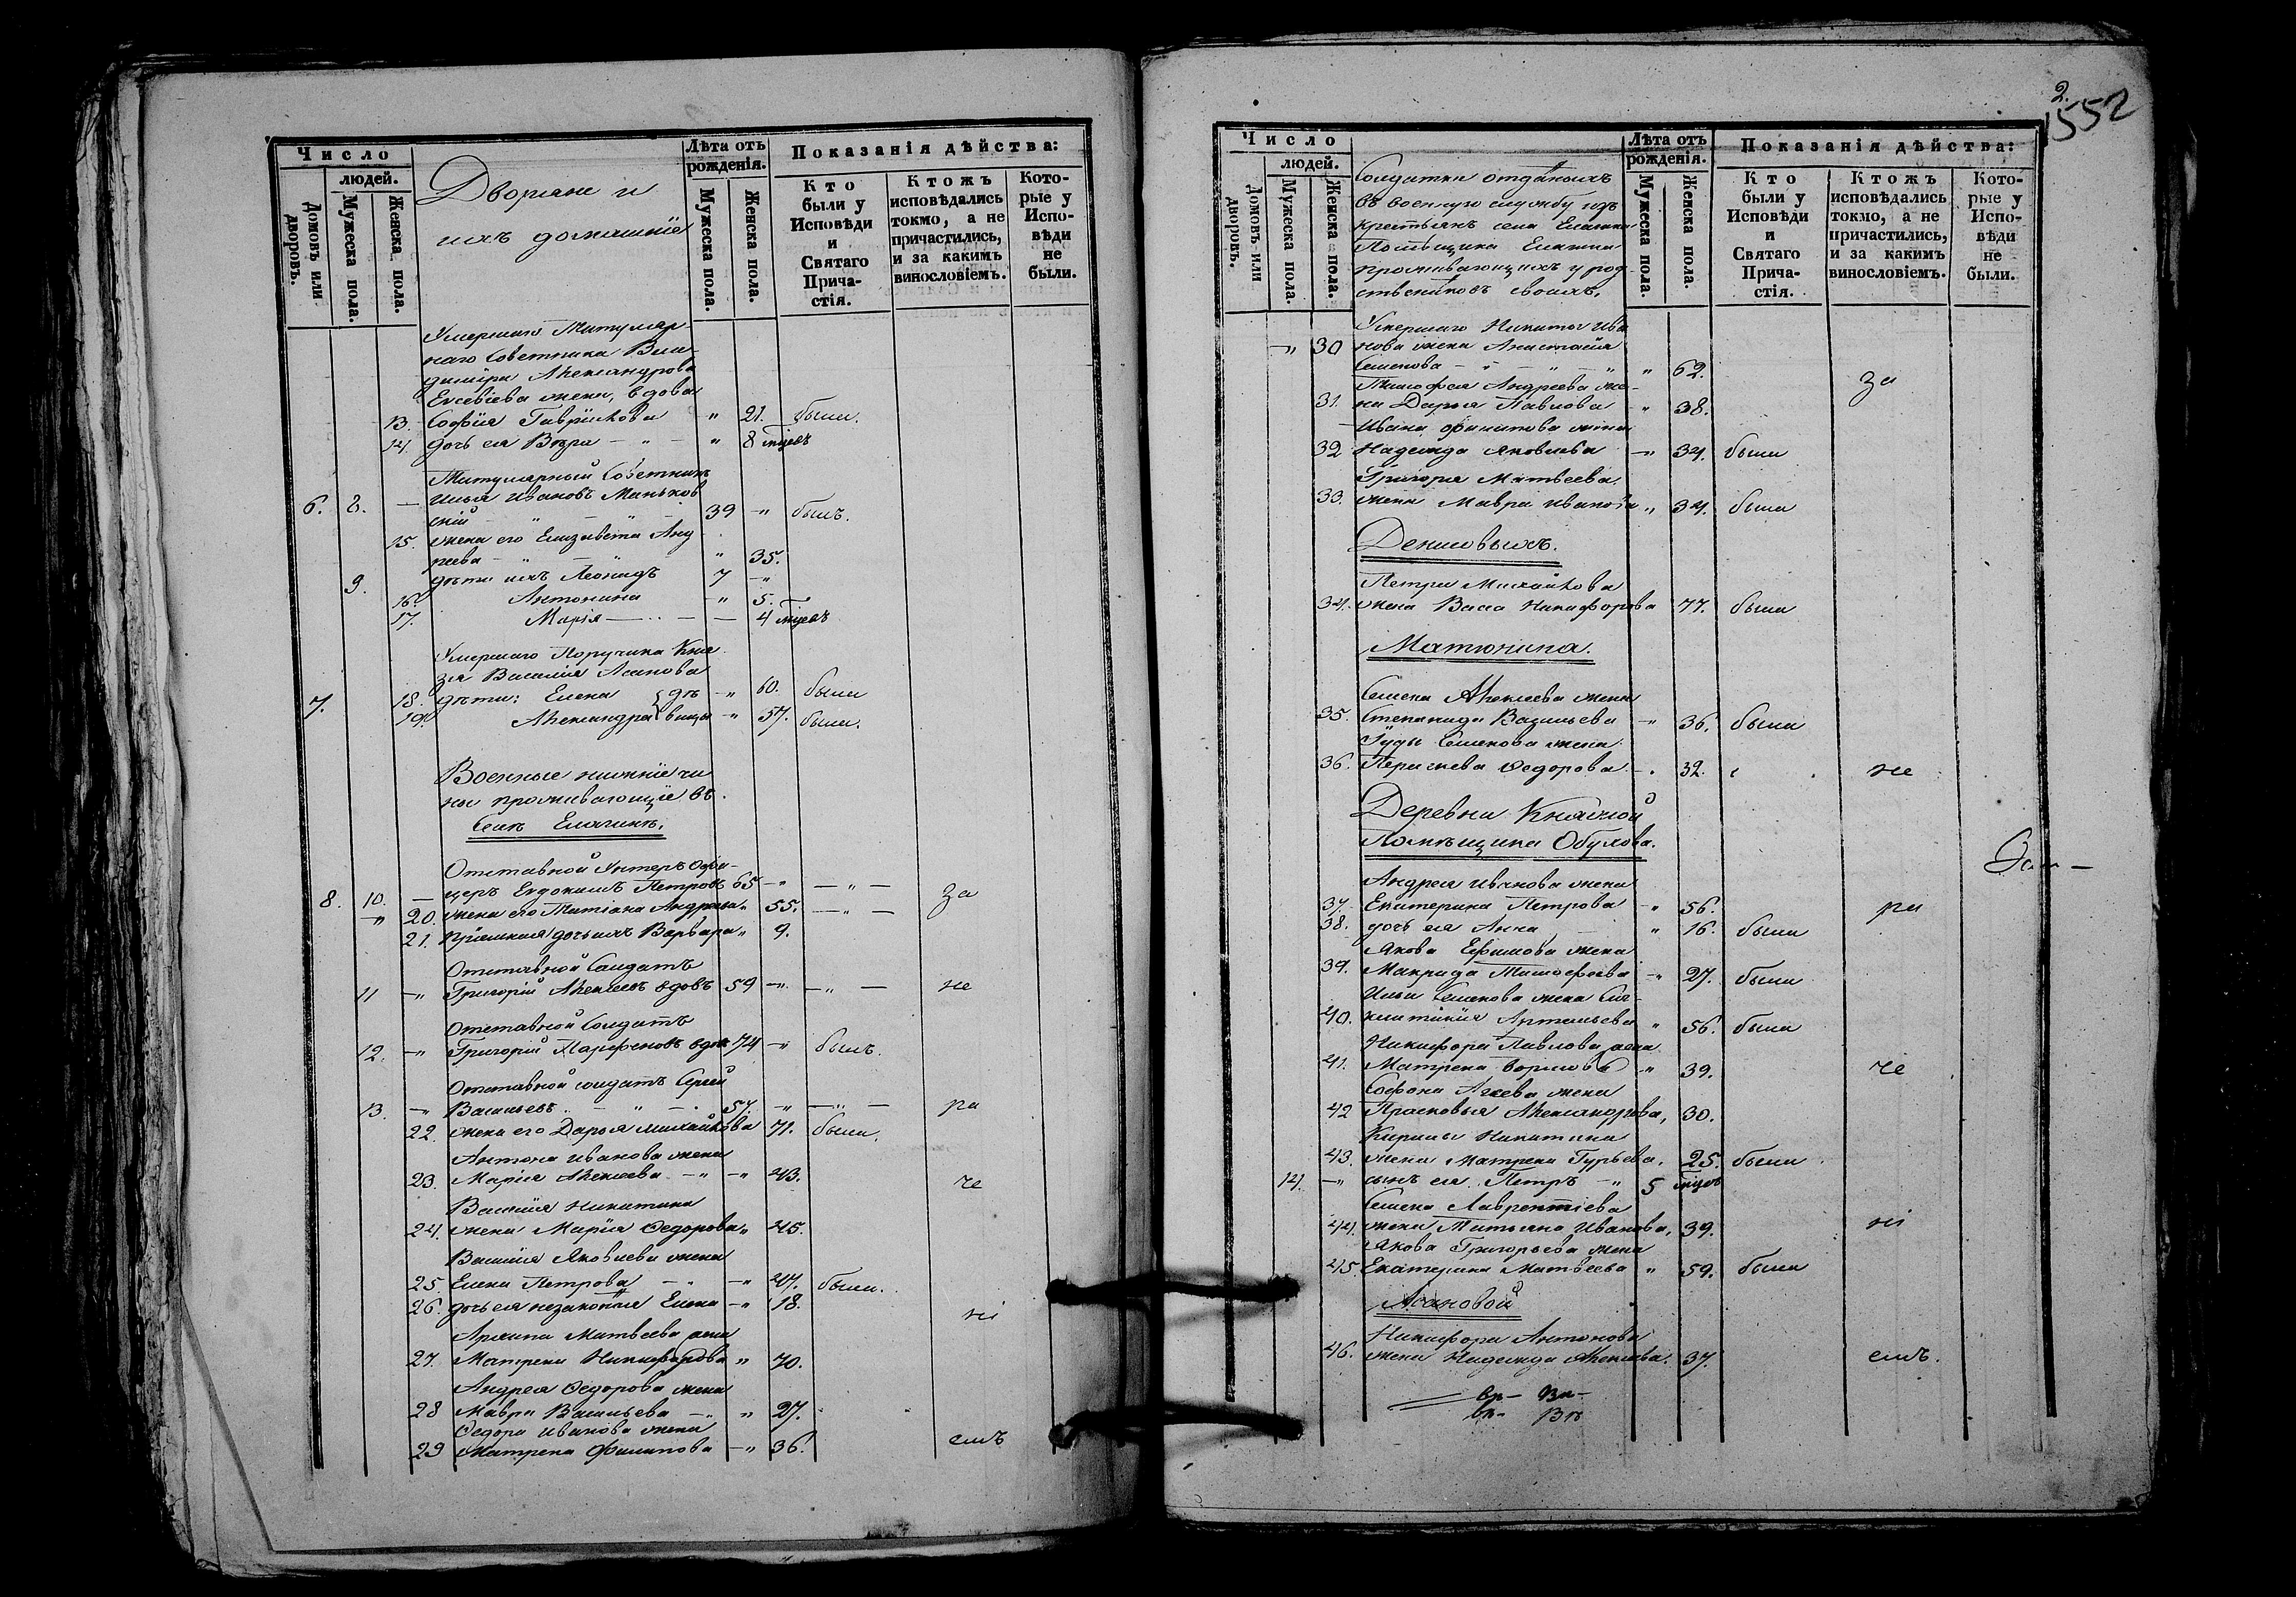 Число
людей.
Домовъ или дворовъ.
Мужеска пола.
Женска пола.
Дворяне и
ихъ домашніе
Лѣта отъ рожденія.
Мужеска пола.
Женска пола.
Показанія дѣйства:
Кто были у Исповѣди и Святаго Причастія.
Ктожъ исповѣдались токмо, а не причастились, и за какимъ винословіемъ.
Которые у Исповѣди не были.
Умершаго Титуляр-
наго Советника Вла-
димира Александрова
Евсевіева жена, вдова
13. Софія Гаврилова " 21. была.
14. дочь ея Вѣра - " - " 8 мѣсяцъ
Титулярный Советникъ
6. 8. — Илья Ивановъ Маньков
скій - " - " 39 - " былъ.
15. жена его Елизавета Анд
реева - " " 35.
9. дѣти ихъ Леонидъ 7 - "
16. Антонина - " 5.
17. Марія — — 4 мѣсяцъ
Умершаго Поручика Кня
зя Василія Асанова
7. 18. дѣти: Елена } дѣ - " 60. была
19. Александра } вицы - " 57. была.
Военные нижніе чи
ны проживающіе въ
Селѣ Елагинѣ.
Отставной Унтеръ Офи-
8. 10. — церъ Евдокимъ Петровъ 65 - " — " — за
- " 20. жена его Татіана Андреева " 55. — " —
21. Пріемная дочь ихъ Варвара " 9.
Отставной Солдатъ
11 - " Григорій Алексеевъ вдовъ 59 - " - " — не
Отставной Солдатъ
12. - " Григорій Парфеновъ вдовъ 74 - " былъ.
Отставной солдатъ Сергей
13. - " Васильевъ - " - 57. - " — " — ра
22. жена его Дарья Михайлова 71. была.
Антона Иванова жена
23. Марія Алексеева - " - " 43. че
Василія Никитина
24. жена Марія Федорова " 45.
Василія Яковлева жена
25. Елена Петрова - " - " 47. была.
26. дочь ея незаконная Елена - " 18. ні
Архипа Матвеева жена
27. Матрена Никифорова " 70.
Андрея Федорова жена
28 Мавра Васильева - " " 27.
Федора Иванова жена
29 Матрена Филипова - " 36. емъ
2.
1552
Число
людей.
Домовъ или дворовъ.
Мужеска пола.
Женска пола.
Солдатки отданыхъ
въ военную службу изъ
крестьянъ села Елагина
Помѣщика Елагина
проживающихъ у род
ственниковъ своихъ.
Лѣта отъ рожденія.
Мужеска пола.
Женска пола.
Показанія дѣйства:
Кто были у Исповѣди и Святаго Причастія.
Ктожъ исповѣдались токмо, а не причастились, и за какимъ винословіемъ.
Которые у Исповѣди не были.
Умершаго Никиты Ива
- " 30 нова жена Анастасія
Семенова - " - " - " " 62. за
Тимофея Андреева же-
31. на Дарья Павлова - " 38.
Ивана Филипова жена
32 Надежда Яковлева - " 34. была
Григорія Матвеева
33. жена Мавра Иванова " 34. была
Денисовыхъ.
Петра Михайлова
34. жена Васса Никифорова 77. была
Матюнина.
Семена Алексеева жена
35. Степанида Васильева - " 36. была
Гуды Семенова жена
36. Перасгева Федорова - . 32. не
Деревни Княжой
Помѣщика Обухова.
Андрея Иванова жена
37. Екатерина Петрова - " 56. ра
38. дочь ея Анна " 16. была
Якова Ефимова жена
39. Макрида Тимофеева - " 27. была
Ильи Семенова жена Сиг-
40. клитикія Артемьева " 56. была
Никифора Павлова жена
41. Матрена Борисова - " 39. че
Софона Агеева жена
42 Прасковья Александрова, 30.
Кирилы Никитина
43. жена Матрена Гурьева. 25. была
14. - " сынъ ея Петръ - " 5 мѣсяцъ
Семена Лаврентіева
44. жена Татьяна Иванова, 39. ні
Якова Григорьева жена
45. Екатерина Матвеева " 59. была
Асановой
Никифора Антонова
46. жена Надежда Алексеева. 37. емъ.